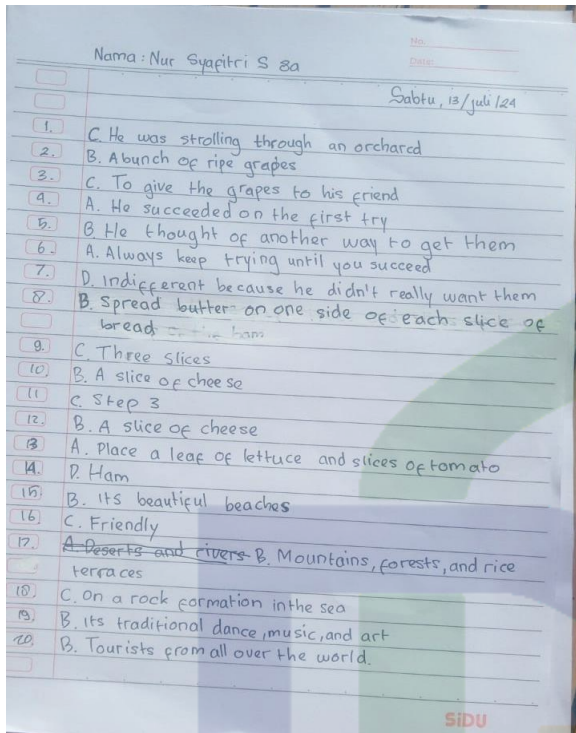 No.
Date:
Nama : Nur Syafitri S 8a
Sabtu, 13/juli/24
1. C. He was strolling through an orchard
2. B. A bunch of ripe grapes
3. C. To give the grapes to his friend
4. A. He succeeded on the first try
5. B. He thought of another way to get them
6. A. Always keep trying until you succeed
7. D. indifferent because he didn't really want them
8. B. Spread butter on one side of each slice of
bread
9. C. Three slices
10. B. A slice of cheese
11 C. Step 3
12. B. A slice of cheese
13 A. Place a leaf of lettuce and slices of tomato
14. D. Ham
15 B. Its beautiful beaches
16 C. Friendly
17. A. Deserts and rivers B. Mountains, forests, and rice
terraces
18. C. On a rock formation in the sea
19. B. Its traditional dance, music, and art
20. B. Tourists from all over the world.
SiDU